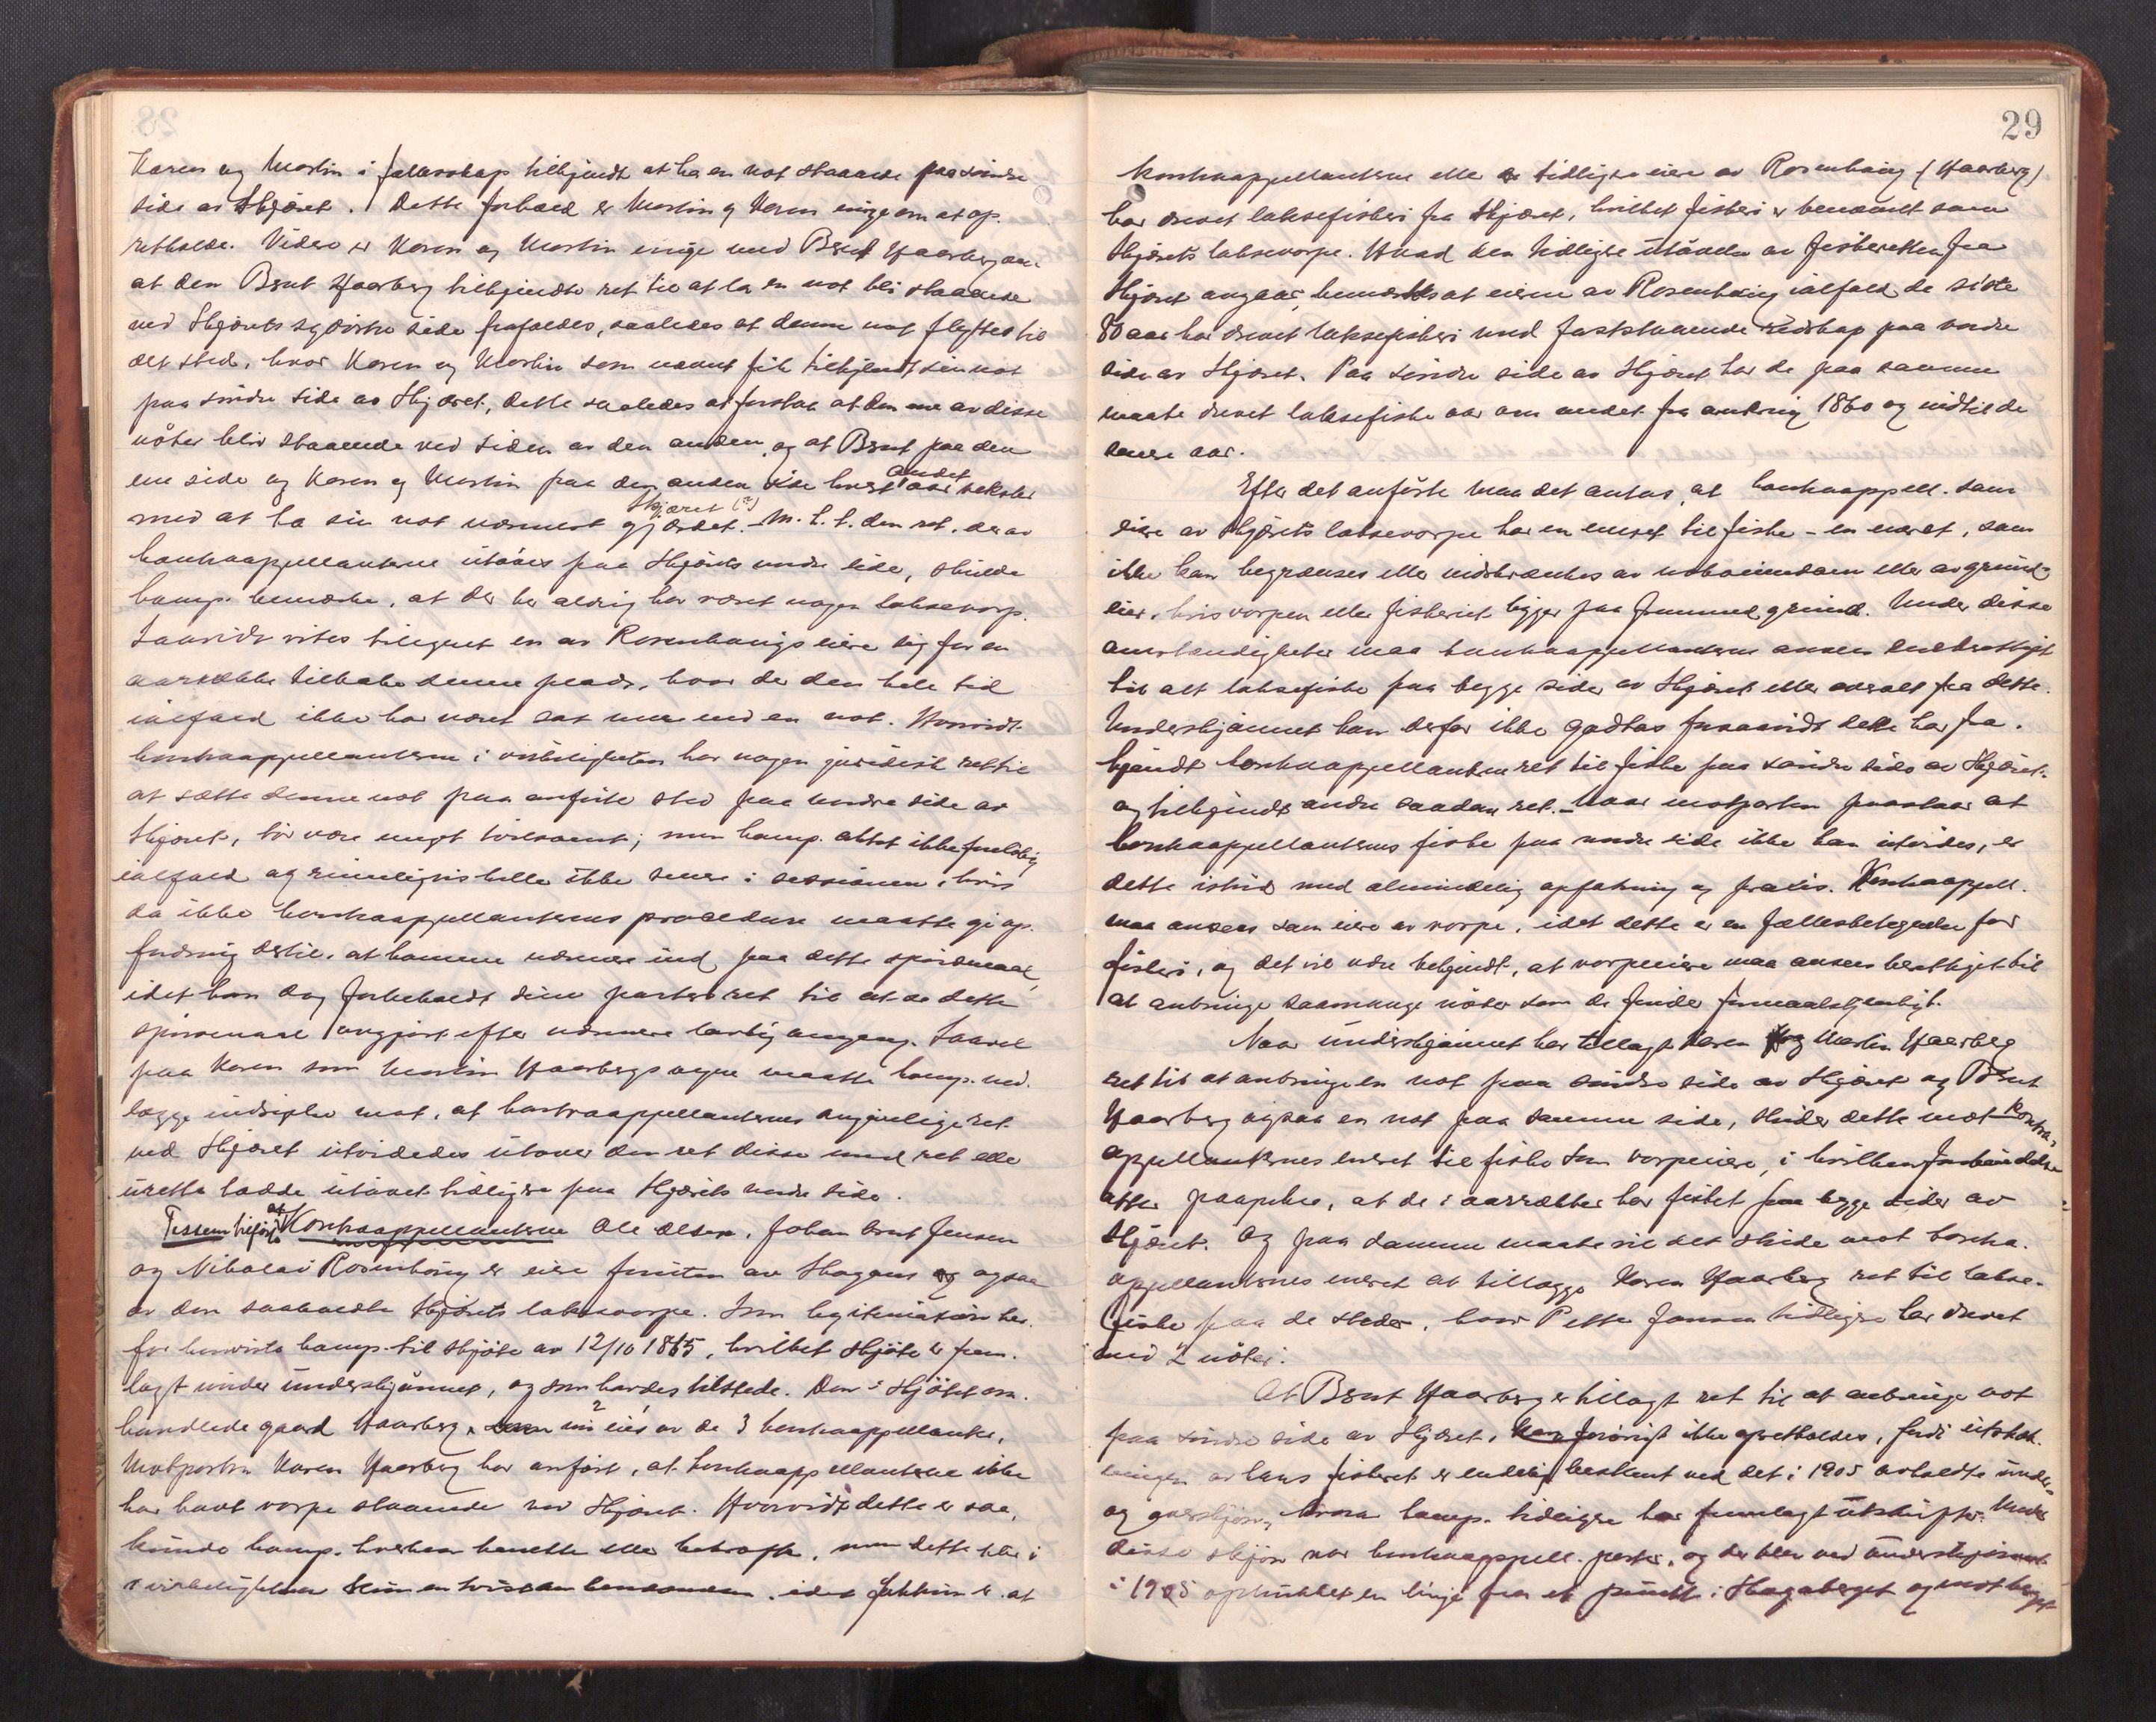 Karen og Martin i fællesskap tilkjendt at ha en not staaende paa søndre
side av Skjæret. Dette forhold er Martin og Karen enige om at op-
retholde. Videre er Karen og Martin enige med Bernt Haarberg om
at den Bernt Haarberg tilkjendte ret til at la en not bli staaende
ved Skjærets sydøstre side frafaldes, saaledes at denne not flyttes til
det sted, hvor Karen og Martin som nævnt fik tilkjendt sin not
paa søndre side av Skjæret, dette saaledes at forstaa at den ene av disse
nöter blir staaende ved siden av den anden, og at Bernt paa den
ene side og Karen og Martin paa den anden side hvert andet aar veksler
med at ha sin not nærmest gjærdet. Skjæret (?) - M. h. t. den ret, der av
kontraappellanterne utöves paa Skjærets nordre side, skulde
komp. bemerke, at der her aldrig har været nogen laksevorp.
Saavidt vites tilegnet en av Rosenhaugs eiere sig for en
aarrække tilbake denne plads, hvor der den hele tid
ialfald ikke har været sat mere end en not. Hvorvidt
kontraappellanterne i virkeligheten har nogen juridisk ret til
at sætte denne not paa anförte sted paa nordre side av
Skjæret, tör være meget tvilsomt; men komp. aktet ikke foreløbig
ialfald og rimeligvis heller ikke senere i sessionen, hvis
da ikke kontraappellanternes procedure maatte gi op-
fordring dertil, at komme nærmere ind paa dette spörsmaal,
idet han dog forbeholdt sine parter ret til at se dette
spörsmaal avgjort efter nærmere lovlig omgang. Saavel
paa Karen som Martin Haarbergs vegne maatte komp. ned-
lægge indsigelse mot, at kontraappellanternes angivelige ret
ved Skjæret utvidedes utover den ret disse med ret eller
urette hadde utövet tidligere paa Skjærets nordre side.
Tessem tilförte at Kontraappellanterne Ole Olsen, Johan Arnt Jensen
og Nikolai Rosenhaug er eiere foruten av Skagens og ogsaa
av den saakaldte Skjærets laksevorpe. Som legitimation her-
for henviste komp. til skjöte av 12/10 1865, hvilket skjöte er frem-
lagt under underskjönnet, og som havdes tilstede. Den i skjötet om-
handlede gaard Haarberg 2 eies av de 3 kontraappellanter.
Motparten Karen Haarberg har anfört, at kontraappellanterne ikke
har havt vorpe staaende ved Skjæret. Hvorvidt dette er saa,
kunde komp. hverken benekte eller bekræfte, men dette blir i
virkeligheten kun en tvist om benævnelsen, idet faktum er at
29
kontraappellanterne eller de tidligere eiere av Rosenhaug (Haarberg)
har drevet laksefiskeri fra Skjæret, hvilket fiskeri er benævnt som
Skjærets laksevorpe. Hvad den tidligere utövelse av fiskeretten fra
Skjæret angaar, bemerkes at eierne av Rosenhaug ialfald de siste
80 aar har drevet laksefiskeri med faststaaende redskap paa nordre
side av Skjæret. Paa söndre side av Skjæret har de paa samme
maate drevet laksefiske aar om andet fra omkring 1860 og indtil de
senere aar.
Efter det anförte maa det antas, at kontraappell. som
eiere av Skjærets laksevorpe har en eneret til fiske - en eneret, som
ikke kan begrænses eller indskrænkes av naboeiendom eller av grund-
eier, hvis vorpen eller fiskeriet ligger paa fremmed grund. Under disse
omstændigheter maa kontraappellanterne ansees eneberettiget
til alt laksefiske paa begge sider av Skjæret eller overalt fra dette.
Underskjönnet kan derfor ikke godtas forsaavidt dette har fra-
kjendt kontraappellanterne ret til fiske paa söndre side av Skjæret
og tilkjendt andre saadan ret. - Naar motparten paastaar at
kontraappellanternes fiske paa nordre side ikke kan utvides, er
dette i strid med almindelig opfatning og praxis. Kontraappell.
maa ansees som eiere av vorpe, idet dette er en fællesbetegnelse for
fiskeri, og det vil være bekjendt, at vorpeeiere maa ansees berettiget til
at anbringe saamange nöter som de finder formaalstjenligt.
Naar underskjönnet har tillagt Karen og Martin Haarberg
ret til at anbringe en not paa söndre side av Skjæret og Bernt
Haarberg ogsaa en not paa samme side, strider dette mot kontra-
appellanternes eneret til fiske som vorpeeiere, i hvilken forbindelse
atter paapekes, at de i aarrækker har fisket paa begge sider av
Skjæret. Og paa samme maate vil det stride mot kontra-
appellanternes eneret at tillægge Karen Haarberg ret til lakse-
fiske paa de steder, hvor Petter Jansen tidligere har drevet
med 2 nöter.
At Bernt Haarberg er tillagt ret til at anbringe not
paa söndre side av Skjæret, kan forövrigt ikke opretholdes, fordi utstræk-
ningen av hans fiskeret er endelig bestemt ved det i 1905 avholdte under-
og overskjön, hvorav komp. tidligere har fremlagt utskrifter. Under
disse skjön var kontraappell. parter, og der blev ved underskjönnet
i 1905 optrukket en linje fra et punkt i Skagaberget og mot berget